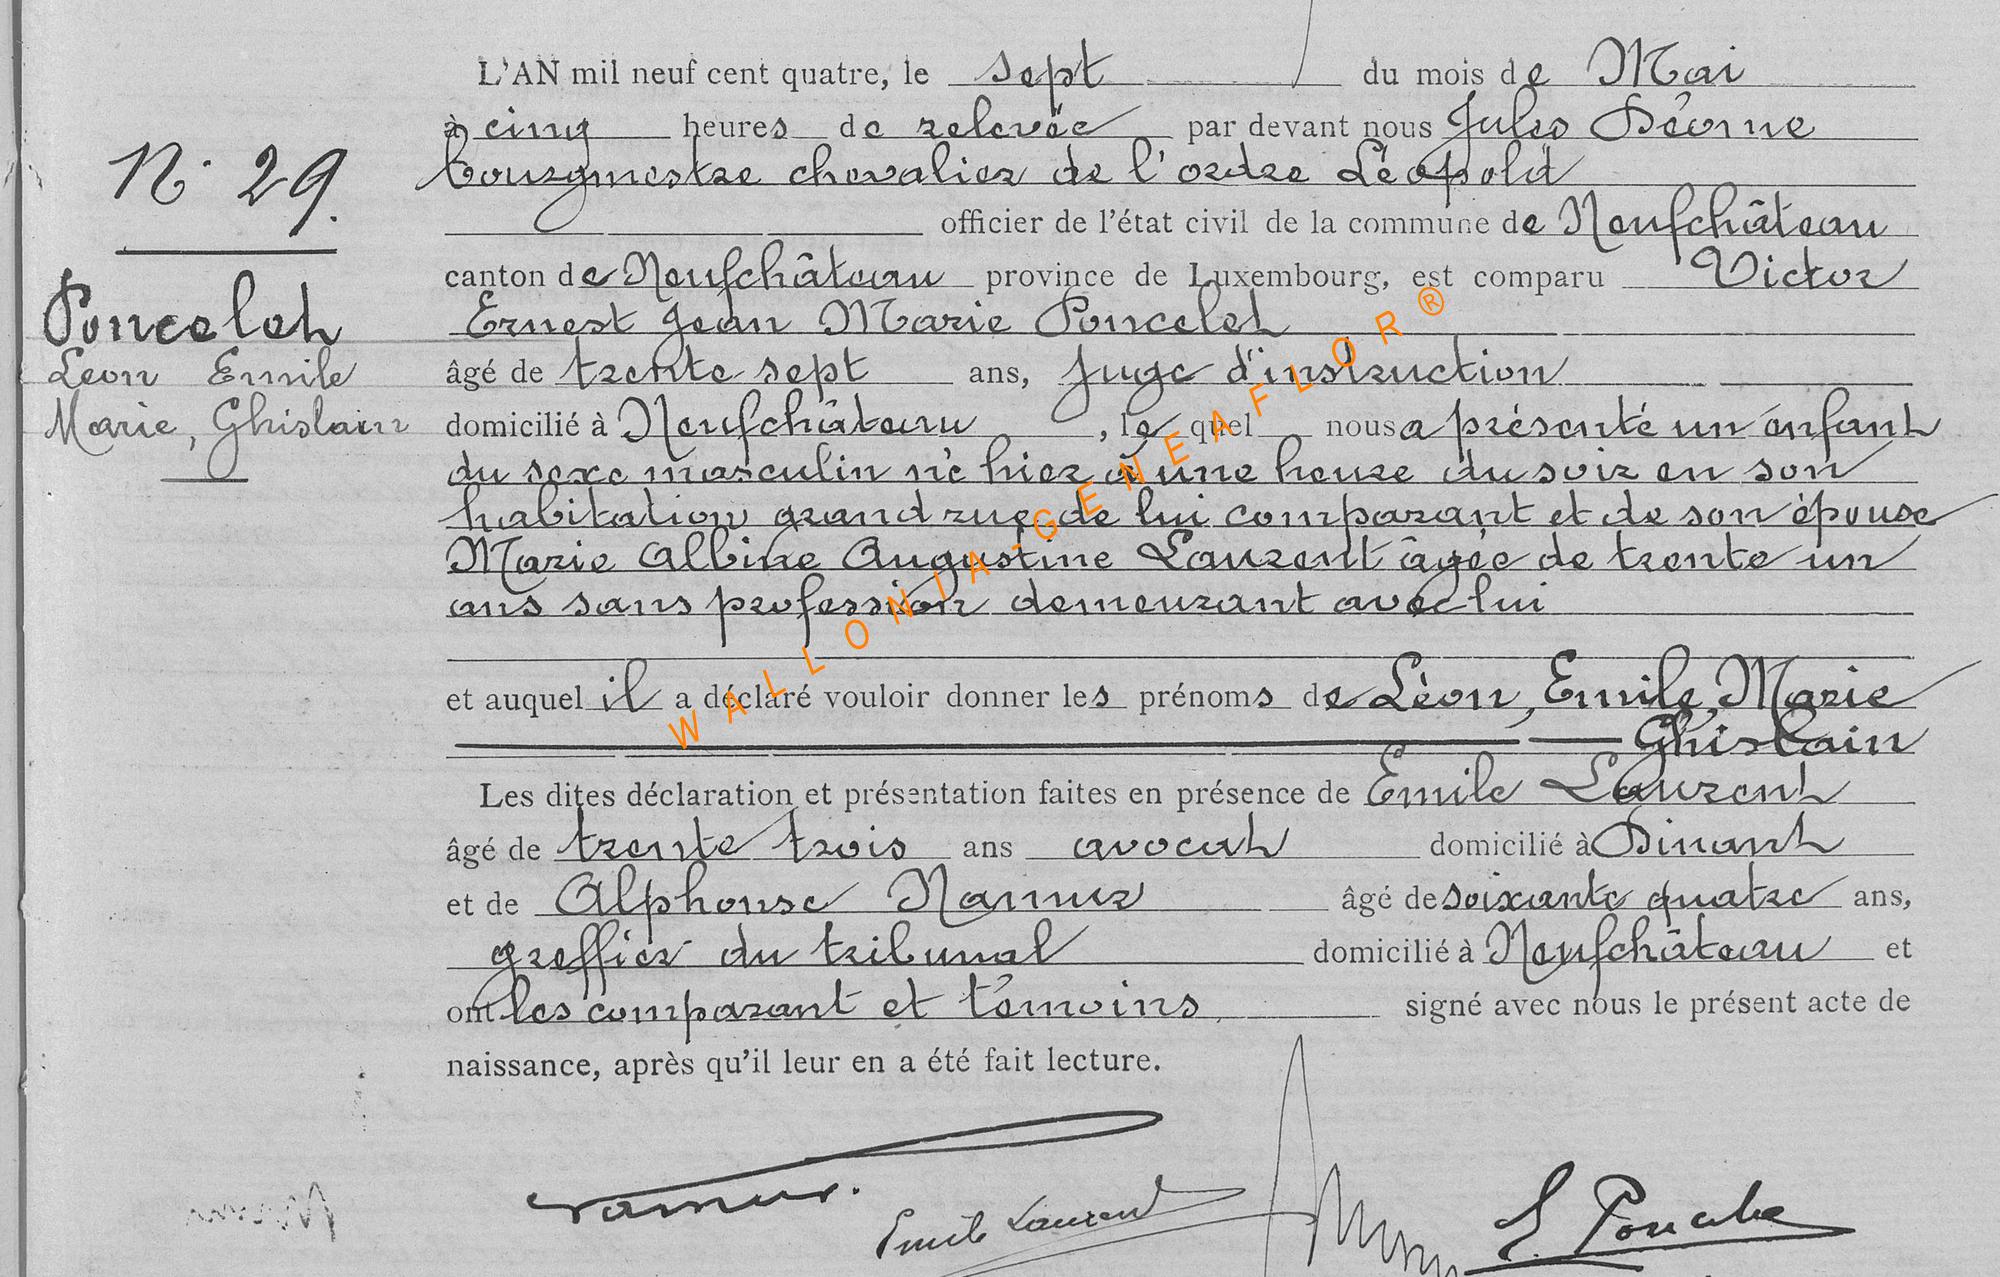 L'AN mil neuf cent quatre, le sept du mois de Mai
à cinq heures de relevée par devant nous Jules
N° 29.
bourgmestre chevalier de l'ordre Léopold
officier de l'état civil de la commune de Neufchâteau
canton de Neufchâteau province de Luxembourg, est comparu Victor
Poncelet
Ernest Jean Marie Poncelet
Leon Emile
âgé de trente sept ans, Juge d'instruction
Marie, Ghislain
domicilié à Neufchâteau, le quel nous a présenté un enfant
du sexe masculin né hier à une heure du soir en son
habitation grand rue de lui comparant et de son épouse
Marie Albine Augustine Laurent âgée de trente un
ans sans profession demeurant avec lui
et auquel il a déclaré vouloir donner les prénoms de Léon, Emile, Marie
Ghislain
Les dites déclaration et présentation faites en présence de Emile Laurent
âgé de trente trois ans avocat domicilié à Dinant
et de Alphonse Namur âgé de soixante quatre ans,
greffier du tribunal domicilié à Neufchâteau et
ont les comparant et témoins signé avec nous le présent acte de
naissance, après qu'il leur en a été fait lecture.
WALLONIA-GENEAFLOR®
Namur.
Emile Laurent
E. Poncelet